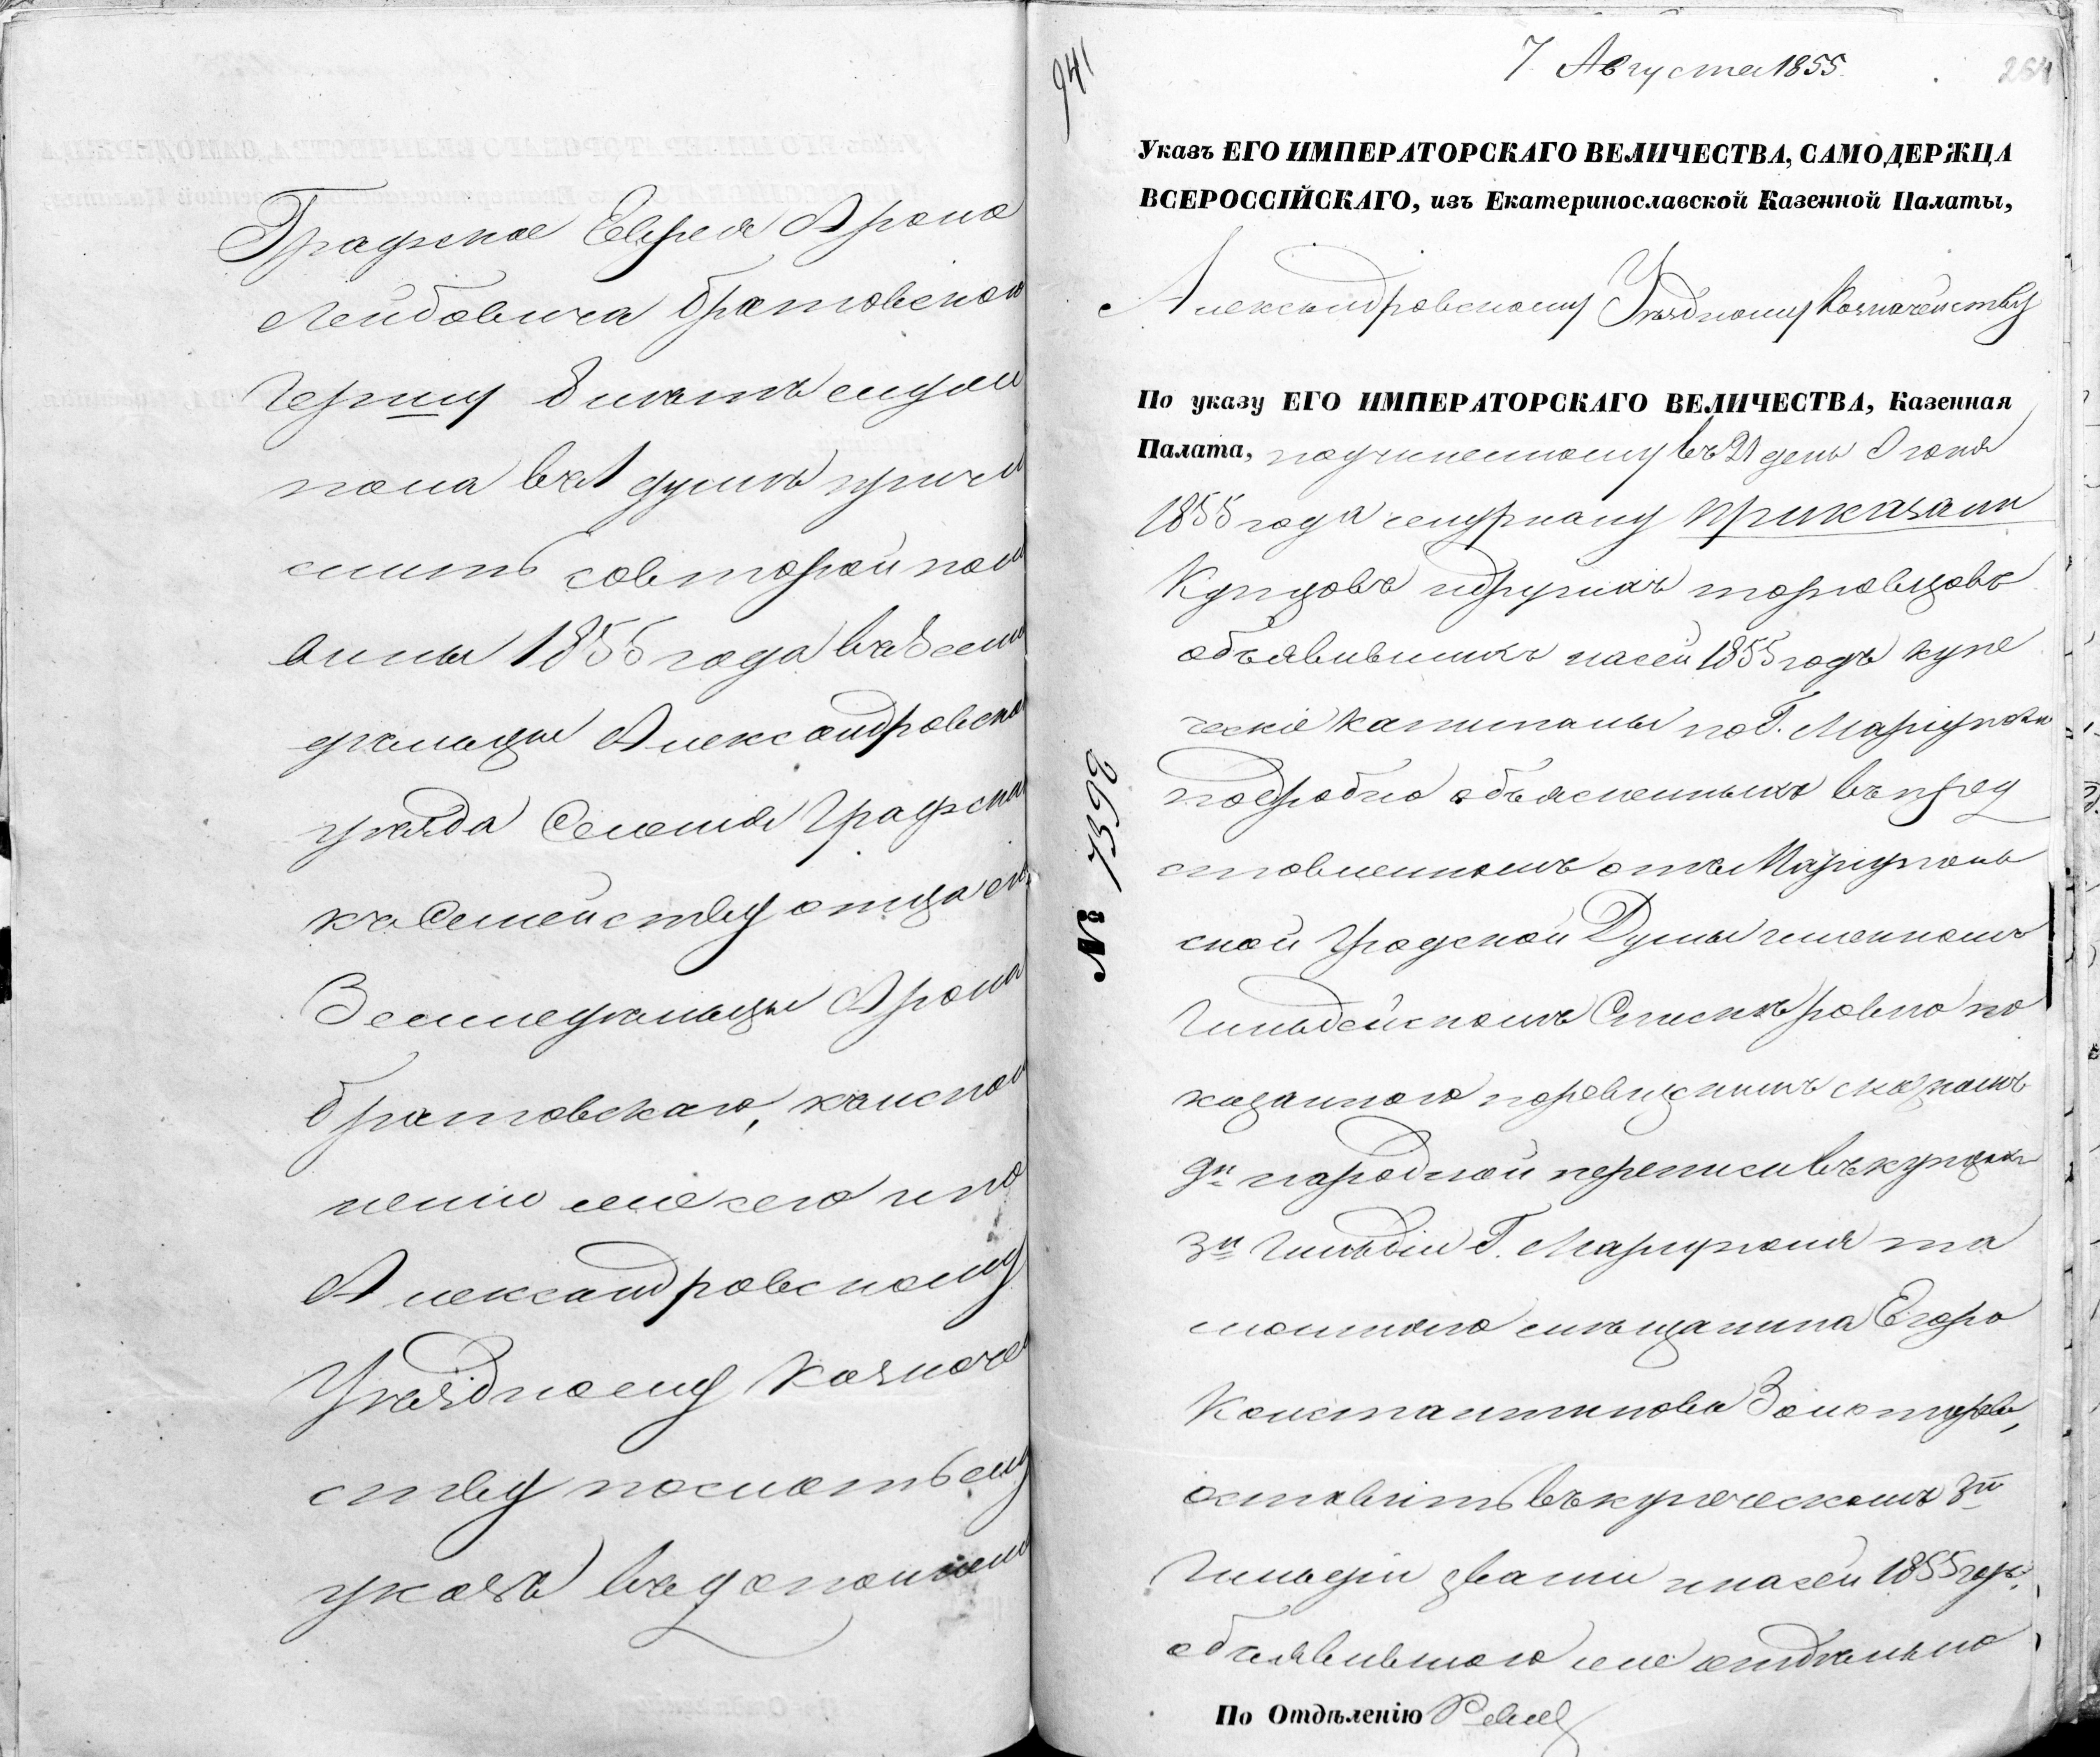 Графское Еврея Арона
Лейбовича Братовскаго
Герша 8 летъ мужеск
пола въ 1 душе причи
слить со второй поло
вины 1855 года въ земле
дѣльцы Александровска
уѣзда Селенія Графска
къ Семейству отца его
Земледѣльца Арона
Братовскаго, къ испол
ненію чего и по
Александровскому
Уѣздному Казначей
ству послать ему
указъ въ дополнені
941
7 Августа 1855
254
Указъ ЕГО ИМПЕРАТОРСКАГО ВЕЛИЧЕСТВА, САМОДЕРЖЦА
ВСЕРОССІЙСКАГО, изъ Екатеринославской Казенной Палаты,
Александровскому Уѣздному Казначейству
По указу ЕГО ИМПЕРАТОРСКАГО ВЕЛИЧЕСТВА, Казенная
Палата, по учиненному въ 21 день Іюня
1855 года журналу приказали
Купцовъ и другихъ торговцовъ
объявившихъ на сей 1855 годъ купе
ческіе капиталы по Г. Маріуполю
подробно объясненныхъ въ пред
ставленномъ отъ Маріуполь
ской Градской Думы именномъ
Гильдейскомъ Спискѣ равно по
казаннаго по ревизскимъ сказкамъ
9й народной переписи въ купцахъ
3й Гильдіи Г. Маріуполя та
мошняго мѣщанина Егора
Константинова Золотарева,
оставить въ купеческомъ 3й
Гильдіи званіи и на сей 1855 годъ,
объявившаго отдѣльно
№ 7392
По Отдѣленію Ревиз